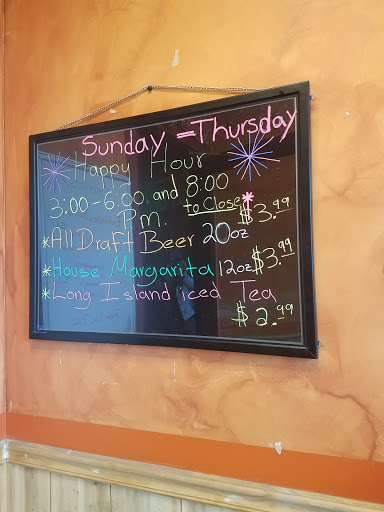 Sunday = Thursday
Happy Hour
3:00-6:00 and 8:00
P.m. to Close*
*All Draft Beer 20oz $3.99
*House Margarita 12oz $3.99
*Long Island iced Tea
$2.99